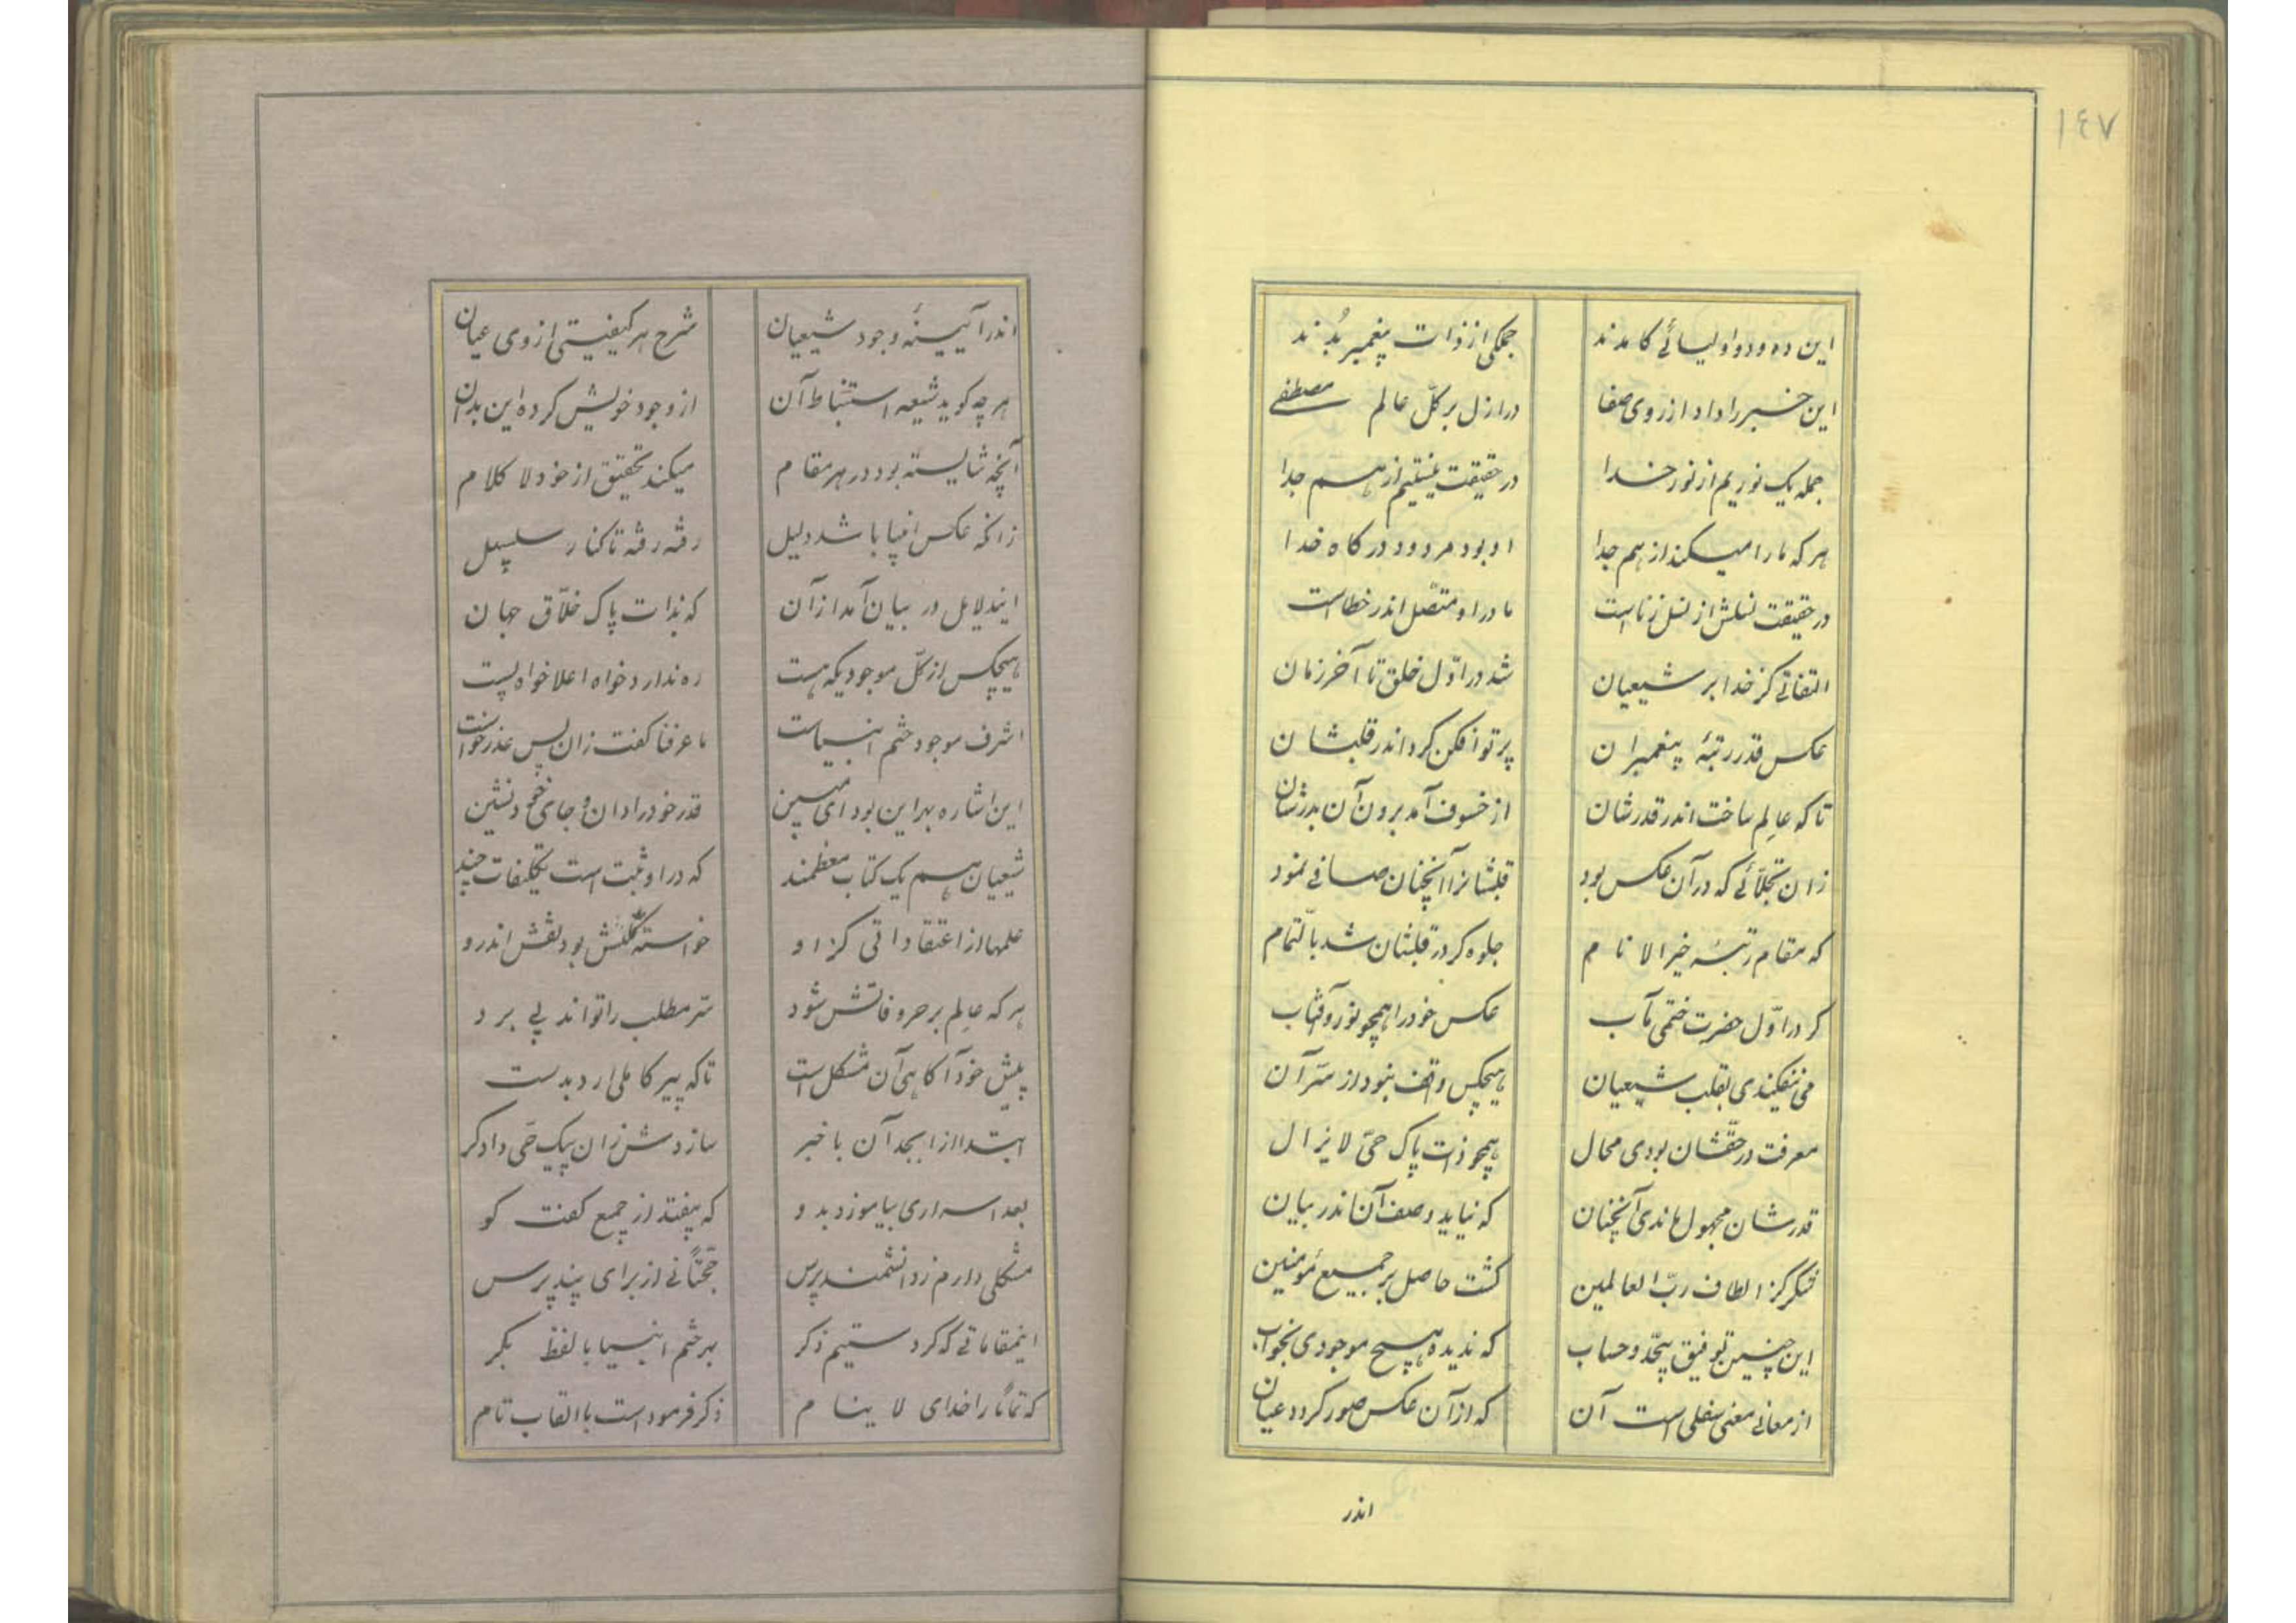 ١٤٧
این ده و دو اولیائے کامدند	جمگی از ذات پیغمبر بُدند
این خبر را داد از روی صفا	در ازل بر کلّ عالم مصطفی
جمله یک نوریم از نور خدا	در حقیقت نیستیم از هم جدا
هر که ما را میکند از هم جدا	او بود مردود درکاه خدا
در حقیقت نسلش از نسل زناست	مادر او متصّل اندر خطاست
التفاتے کز خدا بر شیعیان	شد در اوّل خلق تا آخر زمان
عکس قدر رتبهٔ پیغمبران	پرتو افکن کرد اندر قلبشان
تا که عالِم ساخت اندر قدرشان	از خسوف آمد برون آن بدرشان
زان تجلّائے که در آن عکس بود	قلبشانرا آنچنان صافے نمود
که مقام رتبهٔ خیر الانام	جلوه کر در قلبشان شد بالتّمام
کر در اوّل حضرت ختمی مآب	عکس خود را همچو نور و آفتاب
می نفکیندی بقلب شیعیان	هیچکس واقف نبود از سّر آن
معرفت در حقّشان بودی محال	همچو ذات پاک حیّ لایزال
قدرشان مجهول ماندی آنچنان	که نیاید وصف آن اندر بیان
شکر کز الطاف ربّ العالمین	کشت حاصل بر جمیع مؤمنین
این چنین توفیق بیحّد و حساب	که ندیده هیچ موجودی بخواب
از معانے معنی سفلی است آن	که از آن عکس صور کردد عیان
اندر
اندر آیینهٔ وجود شیعیان	شرح هر کیفیتی از وی عیان
هر چه کوید شیعه استنباط آن	از وجود خویش کرده این بدان
آنچه شایسته بود در هر مقام	میکند تحقیق از خود لا کلام
زانکه عکس انبیا باشد دلیل	رفته رفته تا کنار سلسبیل
ایندلایل در بیان آمد از آن	که بذات پاک خلّاق جهان
هیچکس از کلّ موجودیکه هست	ره ندارد خواه اعلا خواه پست
اشرف موجود ختم انبیاست	ما عرفنا کفت زان پس عذر خواست
این اشاره بهر این بود ای مهین	قدر خود را دان و جای خود نشین
شیعیان هم یک کتاب معظمند	که در او ثبت است تکلیفات چند
علمها از اعتقاداتی کز او	خواسته کلکش بود نقش اندرو
هر که عالِم بر حروفاتش شود	سّر مطلب را تواند پی برد
پیش خود آکاهی آن مشکل است	تا که پیر کاملی ارد بدست
ابتدا از ابجد آن با خبر	سازدش زان پیک حّی دادکر
بعد اسراری بیاموزد بدو	که بیفتد از جمع کفت کو
مشکلی دارم ز دانشمند پرس	حجّتانے از برای پند پرس
اینمقاماتے که کردستیم ذکر	بهر ختم انبیا با لفظ بکر
که تماماً را خدای لا ینام	ذکر فرموداست با القاب تام